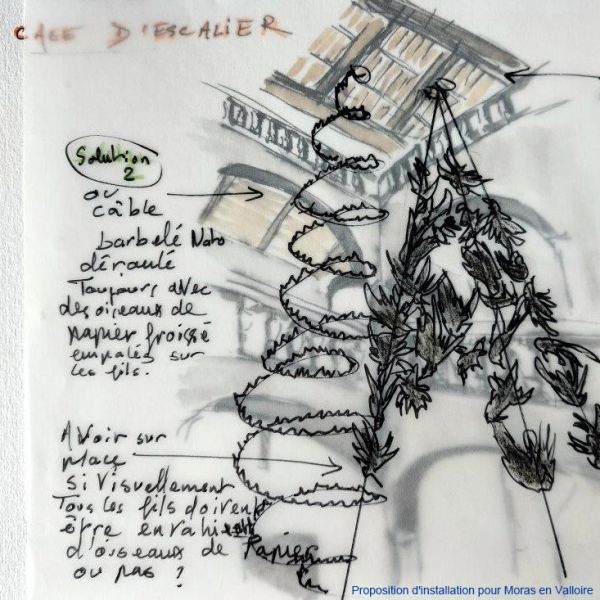 CAGE D'ESCALIER
Solution
2
ou
câble
barbelé Nato
déroulé
Toujours avec
des oiseaux de
papier froissé
empalés sur
les fils.
A Voir sur
place
si visuellement
Tous les fils doivent
être envahis
d'oiseaux de Papier
ou pas ?
Proposition d'installation pour Moras en Valloire